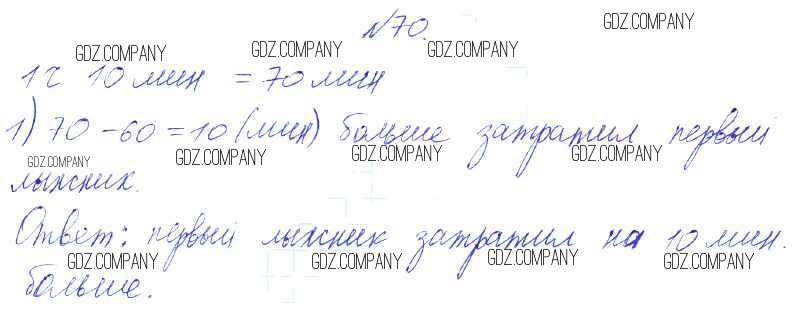 №70.
1 ч 10 мин = 70 мин
1) 70 - 60 = 10 (мин) больше затратил первый
лыжник.
Ответ: первый лыжник затратил на 10 мин.
больше.
GDZ.COMPANY
GDZ.COMPANY
GDZ.COMPANY
GDZ.COMPANY
GDZ.COMPANY
GDZ.COMPANY
GDZ.COMPANY
GDZ.COMPANY
GDZ.COMPANY
GDZ.COMPANY
GDZ.COMPANY
GDZ.COMPANY